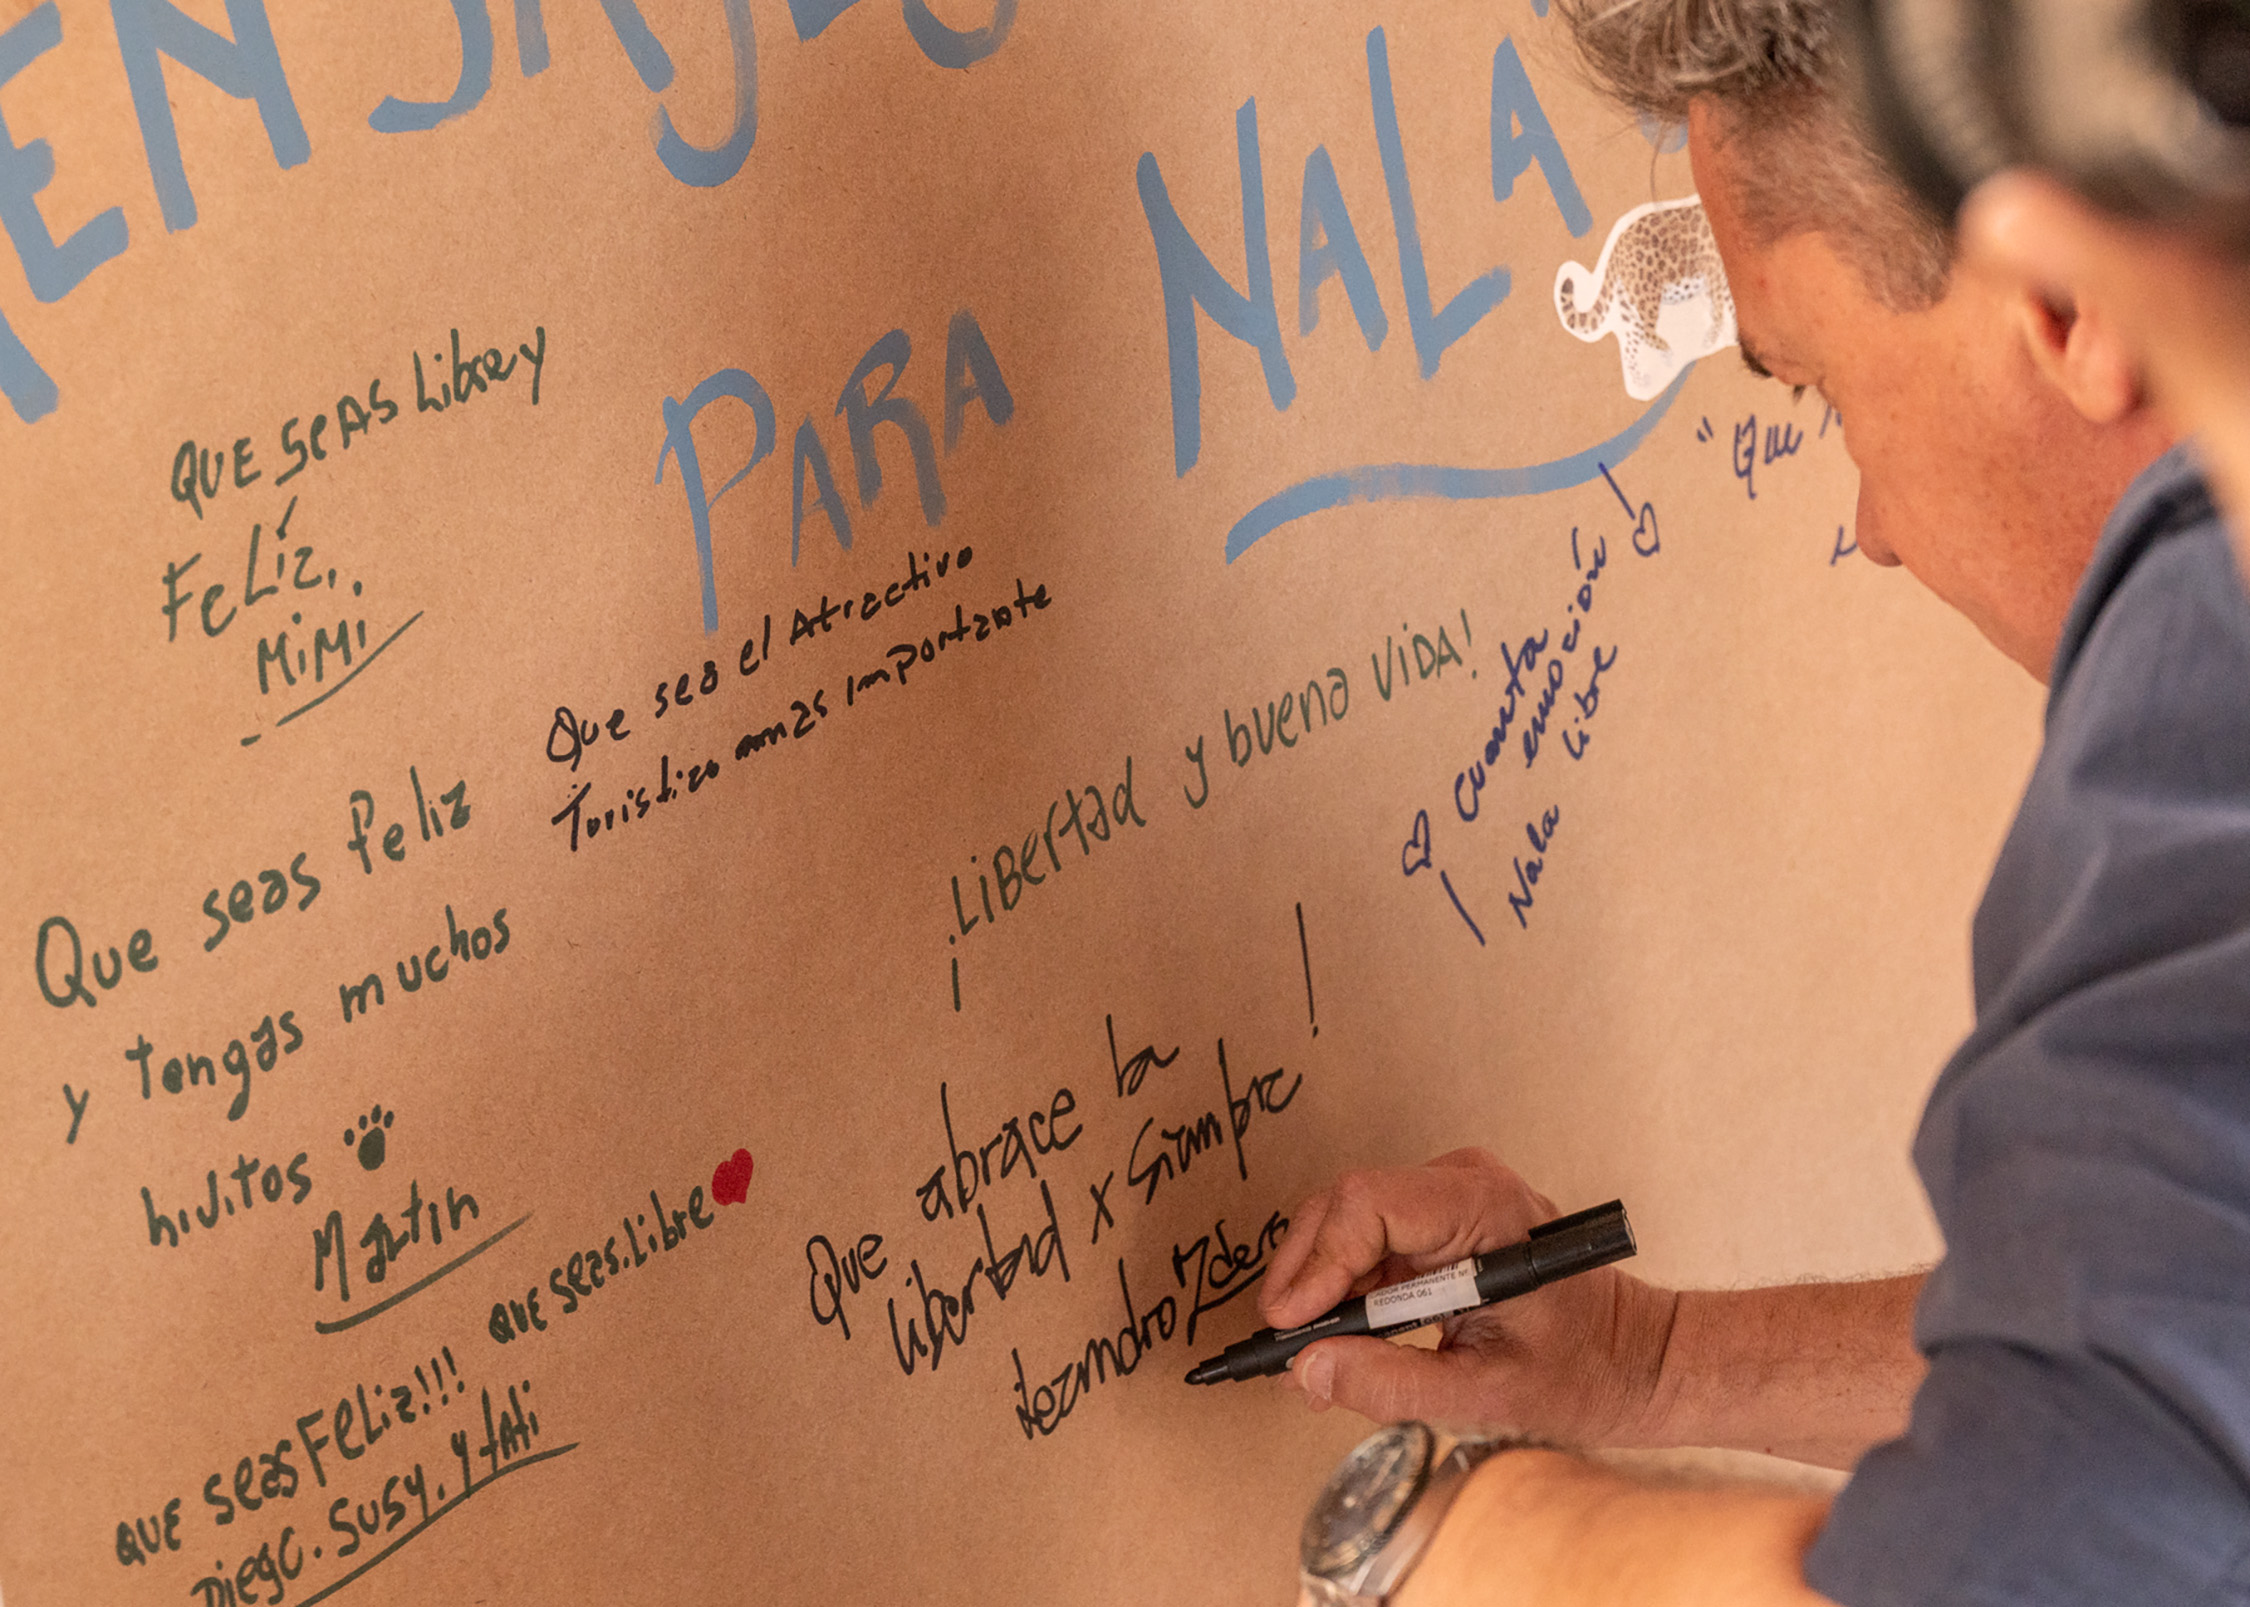 MENSAJES
PARA NALA
QUE SEAS Libre y
FeLíz..
MiMi
Que sea el Atractivo
Turistico mas importante
Que seas feliz
y tengas muchos
hijitos
Martin
¡LiBertad y buena ViDA!
¡Cuanta
emoción!
Nala libre
"Que
Que abrace la
libertad x siempre!
Leandro
QUE SEAS.Libre
QUE SEAS FeLiz!!!
DiegO. SUSY. Y tAti
CADOR PERMANENTE Nº
REDONDA 061